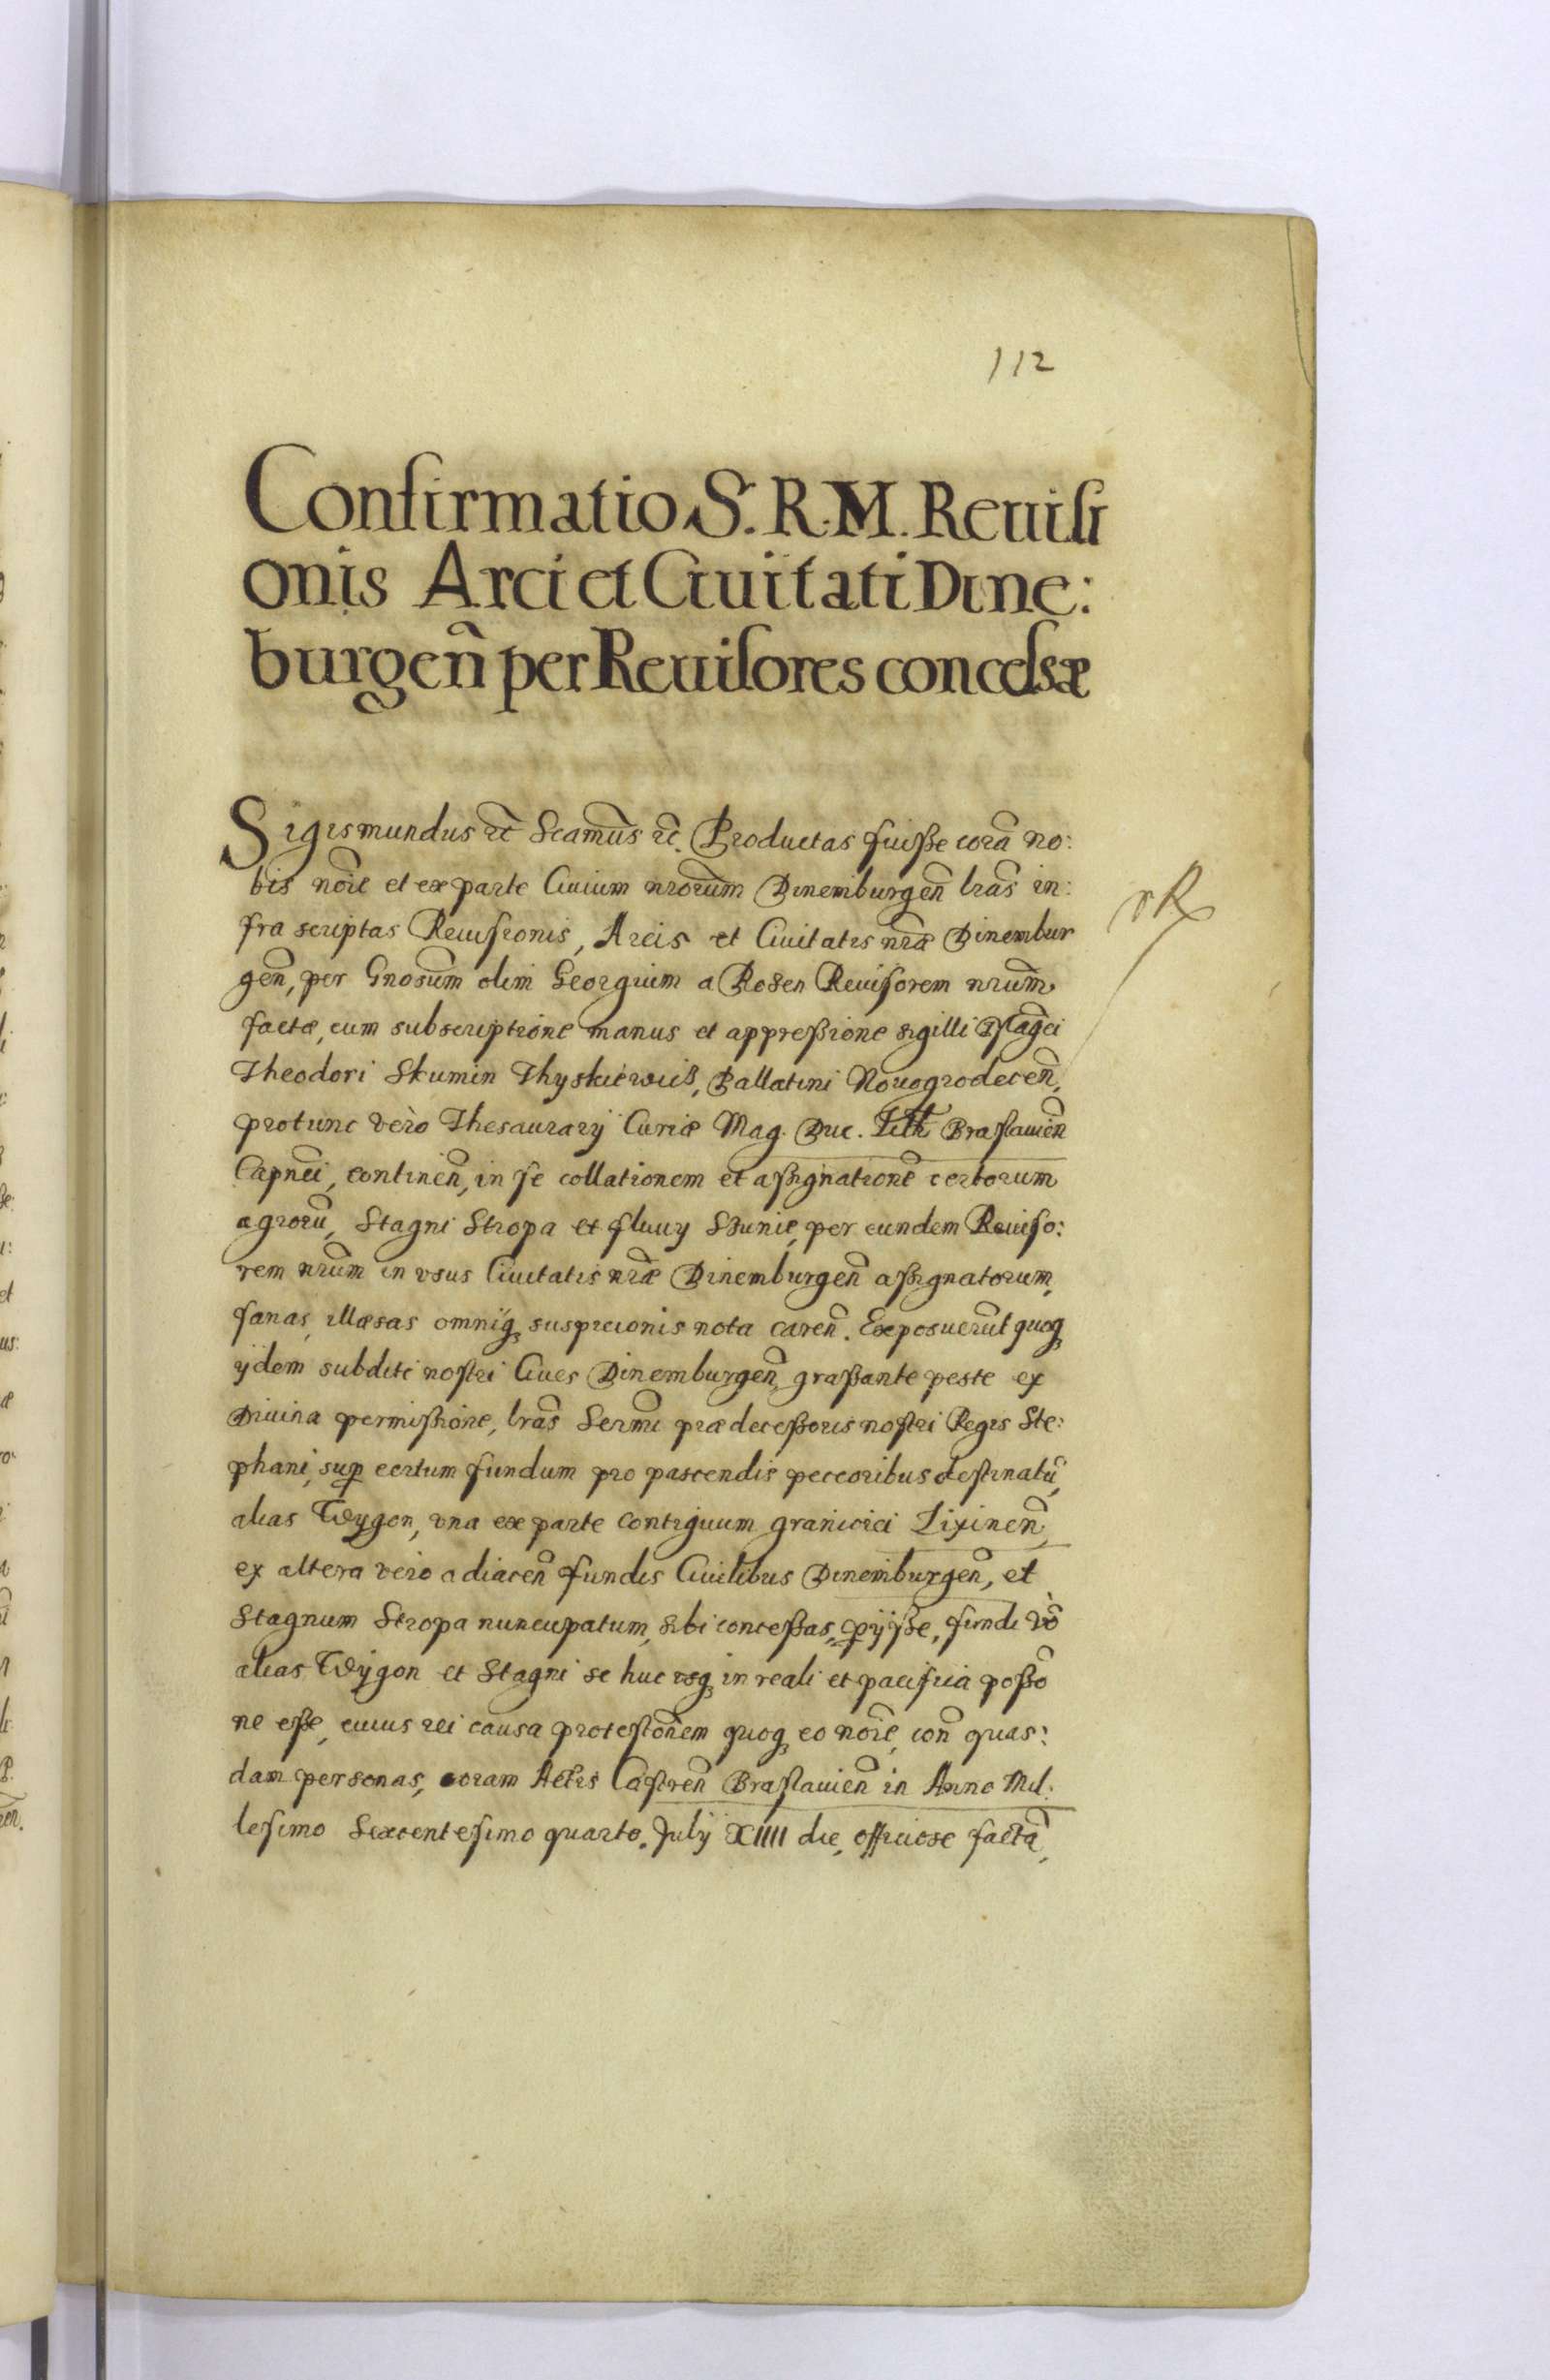 112
Confirmatio S. R. M. Reuisi
onis Arci et Ciuitati Dine:
burgen̄ per Reuisores concessæ
Sigismundus etc̄ Scamūs etc̄. Productas fuisse corā no:
bis nōīe et ex parte Ciuium nrōrum Dinemburgen̄ lrās in:
fra scriptas Reuisionis, Arcis et Ciuitatis nrāe Dinembur
gen̄, per Gnosūm olim Georgium a Rosen Reuisorem nrūm
factæ, cum subscriptione manus et appressione sigilli Mag̃ci
Theodori Skumin Thyskiewicß, Pallatini Nouogrodecen̄,
protunc verò Thesaurarÿ Curiæ Mag. Duc. Litt̄ Braslauien̄
Capnēi, continen̄, in se collationem et assignationē certorum
agrorū, Stagni Stropa et fluuÿ Szunie, per eundem Reuiso:
rem nrūm in vsus Ciuitatis nrāe Dinemburgen̄ assignatorum,
sanas, illæsas omniq̃ suspicionis nota caren̄. Exposuerūt quoq̃
ÿdem subditi nostri Ciues Dinemburgen̄, grassante peste ex
Diuina permissione, lrās Sermī prædecessoris nostri Regis Ste:
phani, sup̱ certum fundum pro pascendis peccoribus destinatū,
alias Wygon, vna ex parte contiguum graniciei Lixinen̄,
ex altera vero adiacen̄ fundis Ciuilibus Dinemburgen̄, et
Stagnum Stropa nuncupatum, sibi concessas, p̱ÿsse, fundi vō
alias Wÿgon et Stagni se huc vsq̃ in reali et pacifica possō
ne esse, cuius rei causa protestōnem quoq̃ eo nōīe, con̄ quas:
dam personas, coram Actis Castren̄ Braslauien̄ in Anno Mil:
lesimo Sexcentesimo quarto. Julÿ XIIII die, officiose factā,